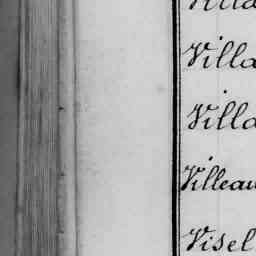 Villa
Villa
Villa
Villeau
Visel